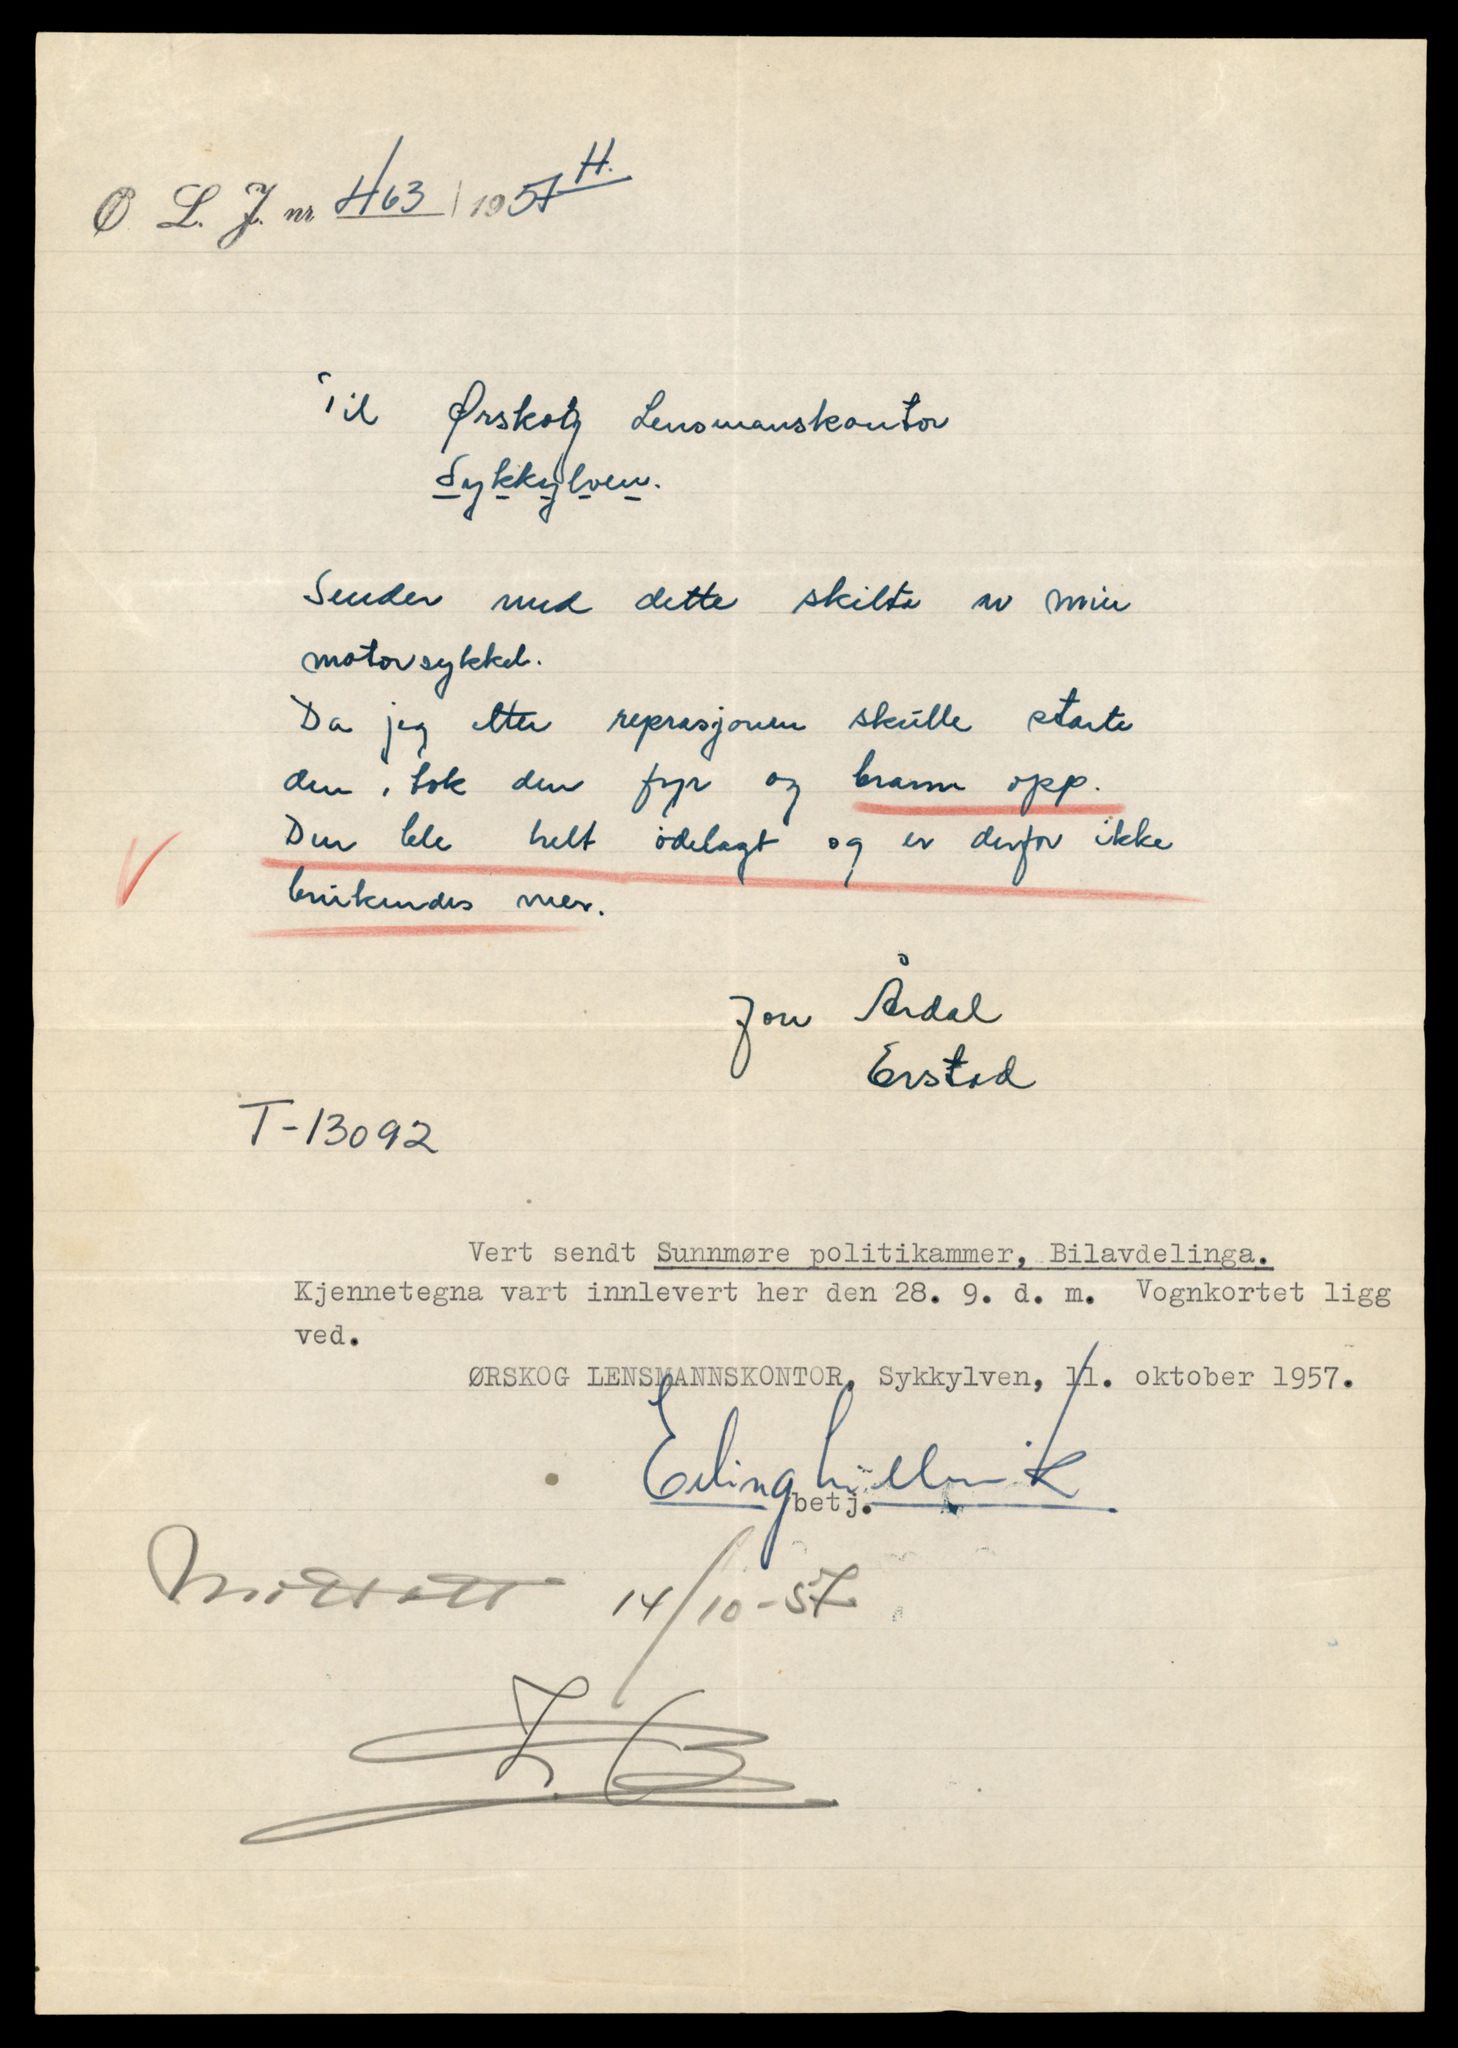 Ø L. J. nr 463 / 1957 H.
Til Ørskog Lensmanskontor
Sykkylven.
Sender med dette skilta av min
motorsykkel.
Da jeg etter reprasjonen skulle starte
den, tok den fyr og brann opp.
Den ble helt ödelagt og er derfor ikke
brukendes mer.
Jon Årdal
Erstad
T-13092
Vert sendt Sunnmøre politikammer, Bilavdelinga.
Kjennetegna vart innlevert her den 28. 9. d. m. Vognkortet ligg
ved.
ØRSKOG LENSMANNSKONTOR, Sykkylven, 11. oktober 1957.
Erling
betj.
Mottatt 14/10-57